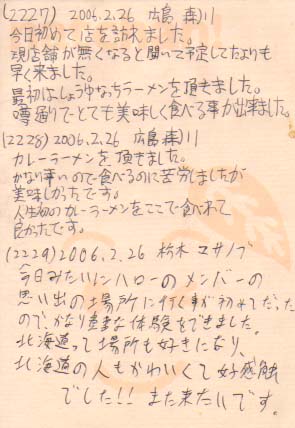 (2227) 2006.2.26 広島 森川
今日初めて店を訪れました。
現店舗が無くなると聞いて予定してたよりも
早く来ました。
最初はしょうゆなっちラーメンを頂きました。
噂通りでとても美味しく食べる事が出来ました。
(2228) 2006.2.26 広島 森川
カレーラーメンを頂きました。
かなり辛いので食べるのに苦労しましたが
美味しかったです。
人生初のカレーラーメンをここで食べれて
良かったです。
(2229) 2006.2.26 栃木 マサノブ
今日みたいにハローのメンバーの
思い出の場所に行く事が初めてだった
ので、かなり貴重な体験をできました。
北海道って場所も好きになり、
北海道の人もかわいくて好感触
でした!! また来たいです。